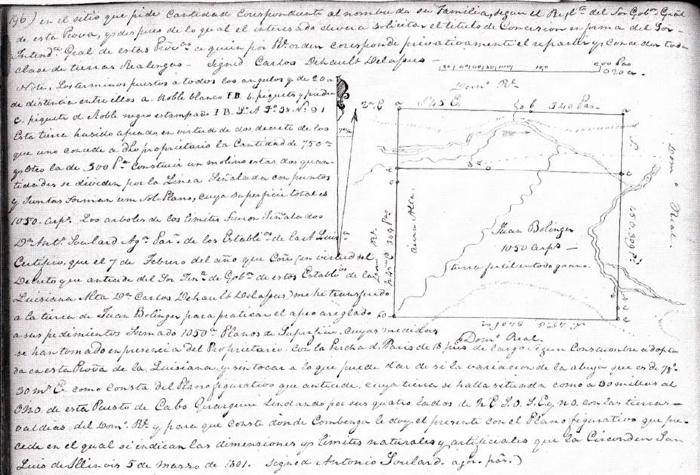 en el sitio que pide Cantidad Correspondiente al nombre de su Familia, segun el Regl.to del Sor Gob.r Gral
de esta Prova, y despues de lo qual el interesado devera solicitar el titulo de Concesion en forma del Sor
Intend.te Gral de estas Prov.s a quien por Rl orden corresponde privativamente el repartir y Conceder toda
clase de tierras Realengas — Signed Carlos Dehault Delassus —
Nota. Los terminos puestos a todos los angulos y de 20 a
de distancia entre ellos a. Roble blanco F.B. b. piquete y piedra
c. piquete d. Roble negro estampado
Esta tierra ha sido apeada en virtud de dos decretos de los
que uno concede a dho proprietario la Cantidad de 750 a.s
y otro la de 300 p.a Construir un molino estas dos quan-
tidades se dividen por la Linea Señalada con puntos
y Juntas forman un Sol Plano, cuya superficie total es
1050 arp.s Los arboles de los limites fueron Señalados
Dn Ant.o Soulard Ag.r Par.r de los Establi.tos de
Certifico, que el 7 de Febrero del año que Corre (en virtud del
Decreto que antecede del Sor Ten.te de Gob.r de estos Establi.tos de la
Luisiana Alta Dn Carlos Dehault Delassus) me he transferido
a la tierra de Juan Bolinger para praticar el apeo areglado
a su pedimientos formado 1050 a.s Planos de Superficie, cuyas medidas
se han tomado en presencia del Proprietario con la Percha de Paris de 18 pies de largo segun Costumbre adopta-
da en esta Prova de la Luisiana, y sin tocar a lo que puede dar de si la variacion de la abuja que es de 7°
30 m.s E. como Consta del Plano figurativo que antecede, cuya tierra se halla situada como a 20 millas al
O.N.O. de este Puesto de Cabo Girardeau Lindando por sus quatro lados de N.E.S.O.S.E. y N.O. con las tierras
valdias del Dom.o Rl y para que conste donde Combenga le doy el presente con el Plano figurativo que pre-
cede en el qual se indican las dimensiones y Limites naturales y artificiales que la Circunden San
Luis de Illinois 5 de Marzo de 1801. Signed Antonio Soulard agr. par.)
Dom.o Rl
340 Par.
Dom.o Real
Juan Bolinger
1050 arp.s —
Dom.o Real